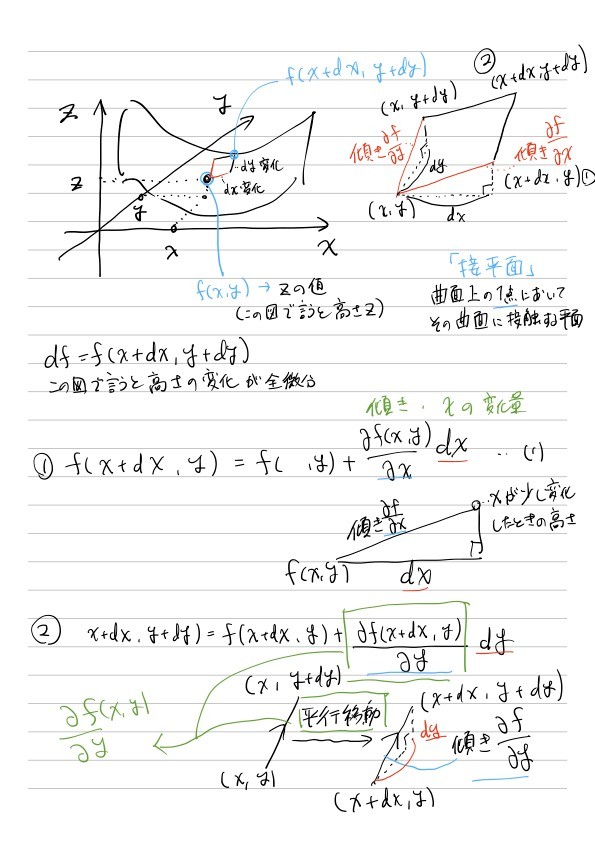 f(x+dx, y+dy)
②
z
y
(x, y+dy)
(x+dx, y+dy)
傾き ∂f/∂y
傾き ∂f/∂x
dy 変化
dx 変化
dy
z
y
(x, y)
(x+dx, y) ①
dx
x
x
f(x,y) → zの値
(この図で言うと高さz)
「接平面」
曲面上の1点において
その曲面に接触する平面
df = f(x+dx, y+dy)
この図で言うと高さの変化が全微分
傾き・xの変化量
① f(x+dx, y) = f( , y) + ∂f(x,y)/∂x dx … (1)
傾き ∂f/∂x
xが少し変化
したときの高さ
f(x,y)
dx
② x+dx, y+dy) = f(x+dx, y) + ∂f(x+dx, y)/∂y dy
(x, y+dy)
∂f(x,y)/∂y
平行移動
(x+dx, y+dy)
dy
傾き ∂f/∂y
(x, y)
(x+dx, y)